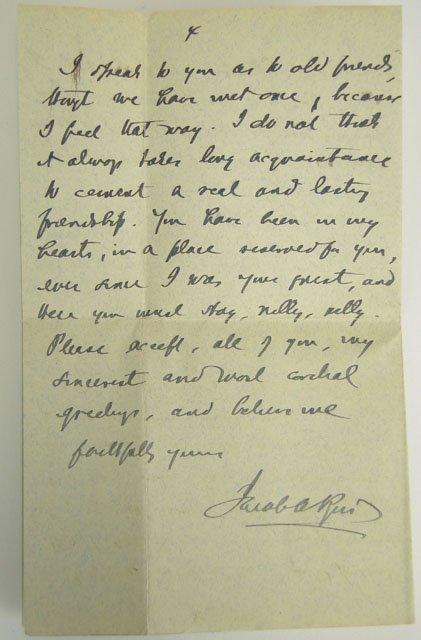 4
I speak to you as to old friends,
tho' we have met once, because
I feel that way. I do not think
it always takes long acquaintance
to cement a real and lasting
friendship. You have been in my
hearts, in a place reserved for you,
ever since I was your guest, and
there you must stay, nilly, nilly.
Please accept, all of you, my
sincerest and most cordial
greetings, and believe me
faithfully yours
Jacob A Riis